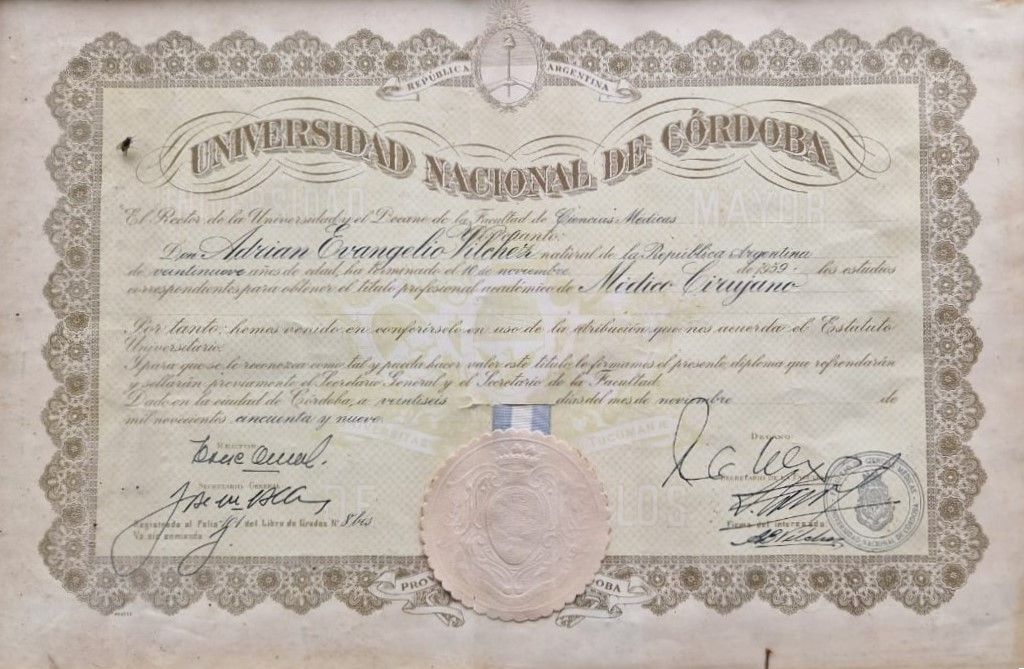 REPÚBLICA ARGENTINA
UNIVERSIDAD NACIONAL DE CÓRDOBA
MAYOR
El Rector de la Universidad y el Decano de la Facultad de Ciencias Medicas
Por cuanto:
Don Adrian Evangelio Vilchez natural de la República Argentina
de veintinueve años de edad, ha terminado el 10 de noviembre de 1959 los estudios
correspondientes para obtener el título profesional académico de Médico Cirujano
Por tanto: hemos venido en conferirselo en uso de la atribución que nos acuerda el Estatuto
Universitario.
I para que se le reconozca como tal y pueda hacer valer este título, le firmamos el presente diploma que refrendarán
y sellarán previamente el Secretario General y el Secretario de la Facultad.
Dado en la ciudad de Córdoba, a veintiseis días del mes de noviembre de
mil novecientos cincuenta y nueve.
TUCUMANÆ
RECTOR
DECANO
SECRETARIO GENERAL
SECRETARIO DE LA
Registrado al Folio del Libro de Grados Nº 8 bis
Va sin enmienda
Firma del interesado
UNIVERSIDAD NACIONAL DE CÓRDOBA
PRO
OBA